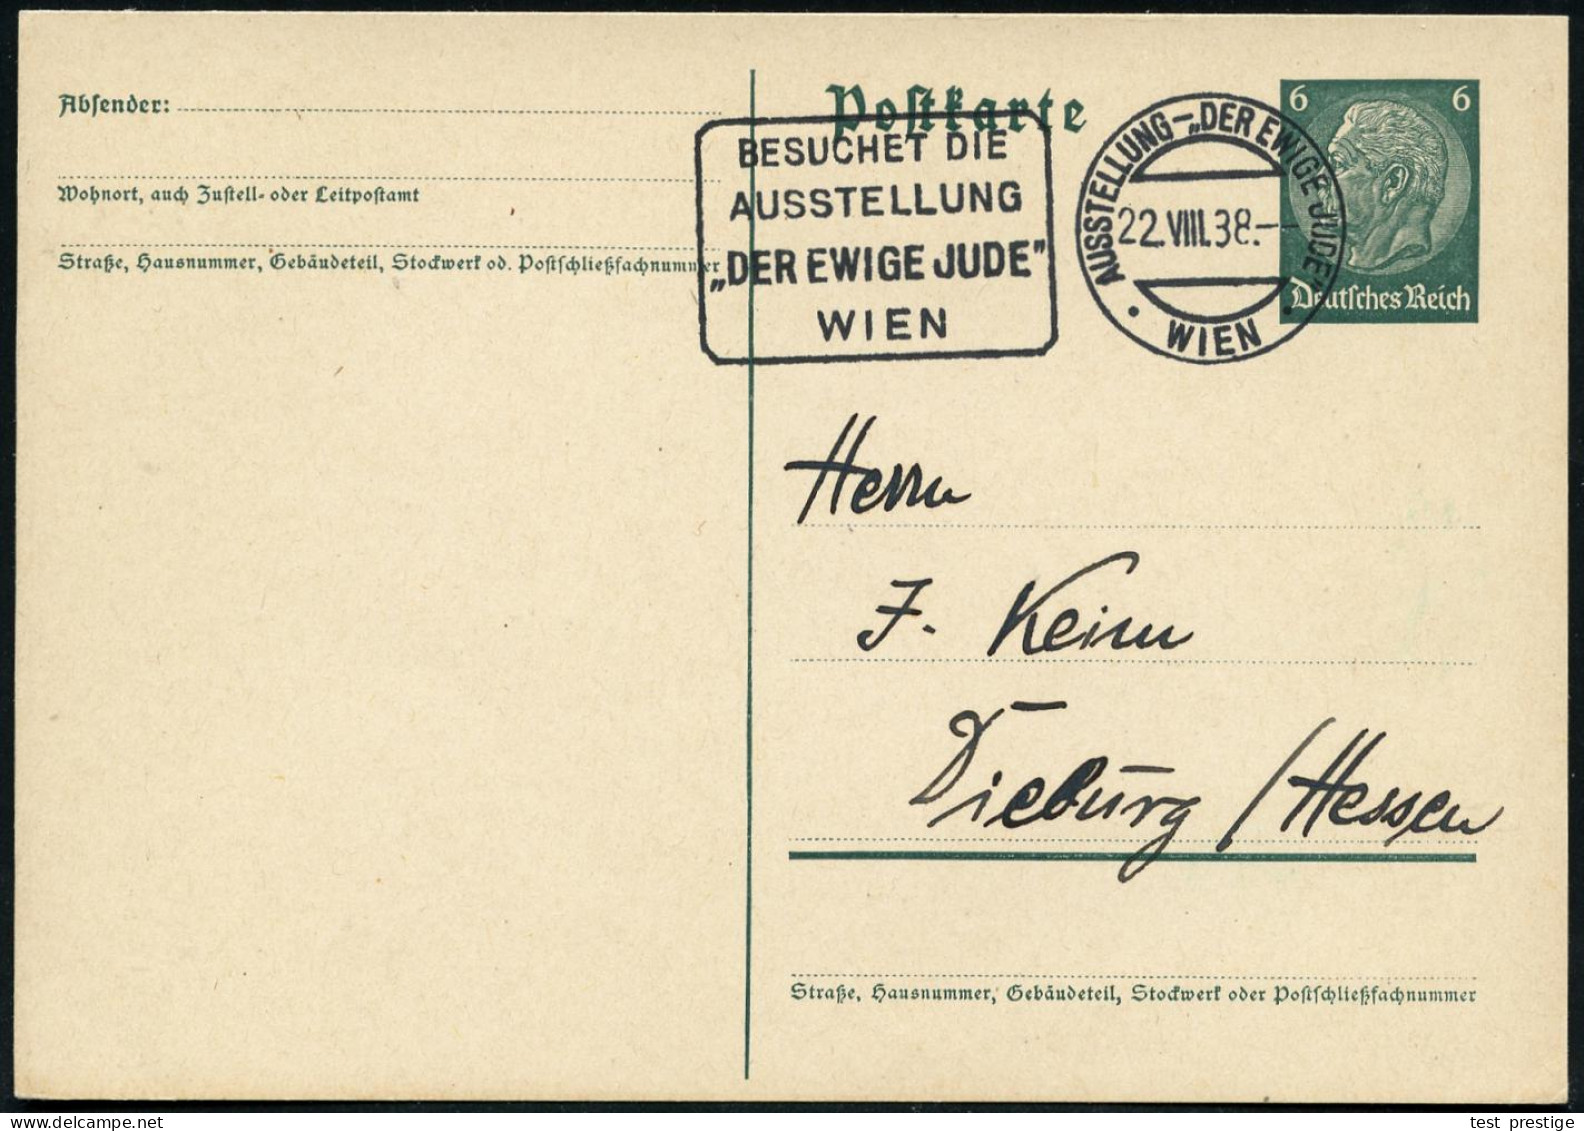 Absender:
Wohnort, auch Zustell- oder Leitpostamt
Straße, Hausnummer, Gebäudeteil, Stockwerk od. Postschließfachnummer
Postkarte
BESUCHET DIE
AUSSTELLUNG
„DER EWIGE JUDE”
WIEN
AUSSTELLUNG-„DER EWIGE JUDE”
22.VIII.38.--
• WIEN •
6 6
Deutsches Reich
Herrn
J. Keim
Dieburg / Hessen
Straße, Hausnummer, Gebäudeteil, Stockwerk oder Postschließfachnummer
test_prestige